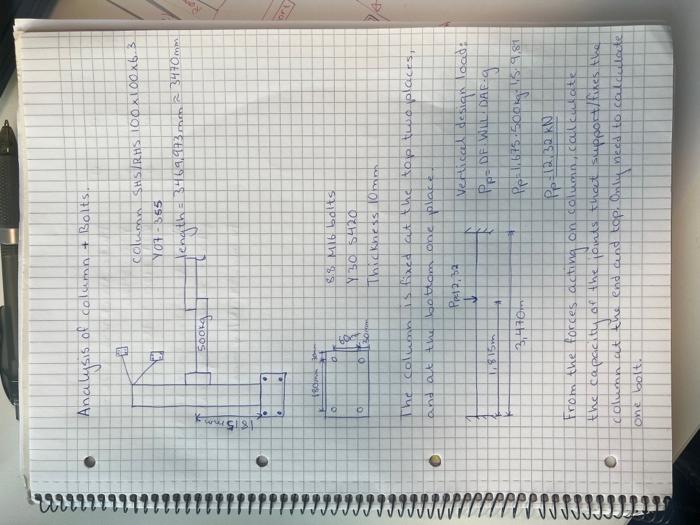 Analysis of column + Bolts.
column SHS/RHS 100x100x6.3
Y07-355
length = 3469,973 mm ≈ 3470mm
500kg
1815mm
8.8 M16 bolts
Y30 S420
Thickness 10mm
180mm
30mm
The column is fixed at the top two places,
and at the bottom one place.
Vertical design load:
Pp = DF·WLL·DAF·g
Pp = 1,675·500kg·1,5·9,81
Pp = 12,32 KN
Pp=12,32
1,815m
3,470m
From the forces acting on column, calculate
the capacity of the joints that support/fixes the
column at the end and top. Only need to calculate
one bolt.